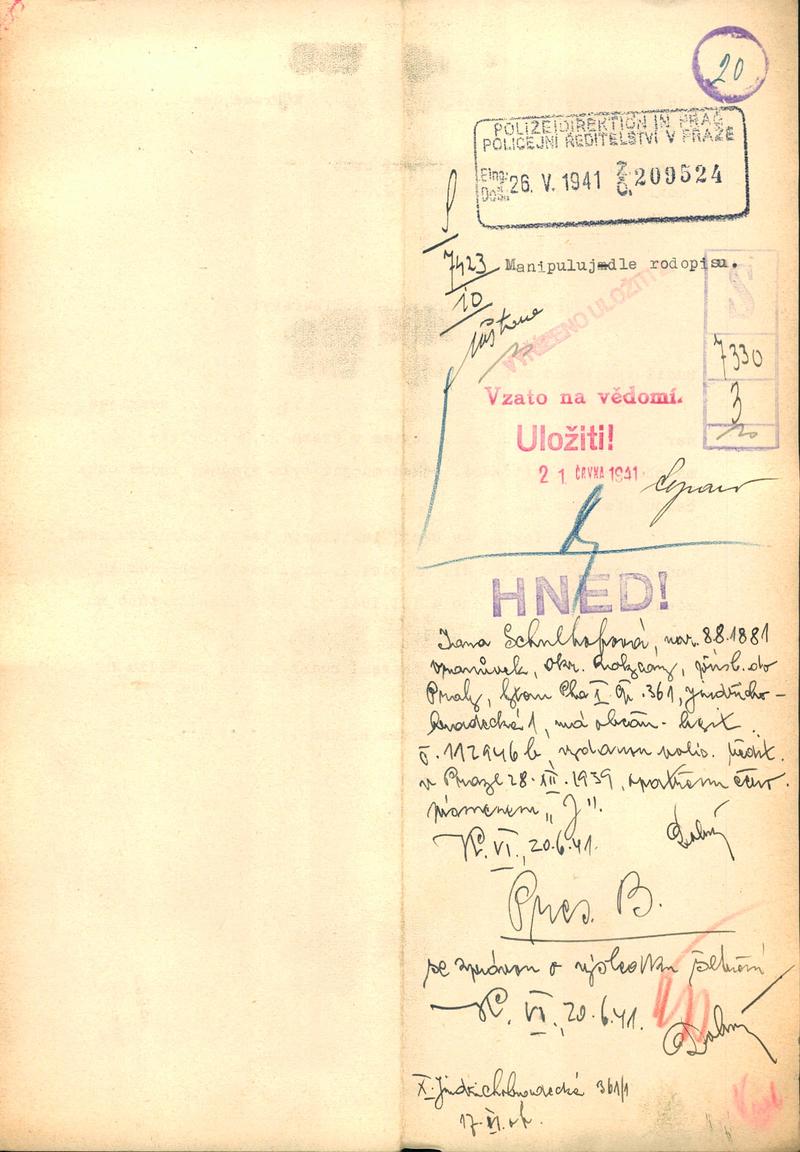 20
POLIZEIDIREKTION IN PRAG
POLICEJNÍ ŘEDITELSTVÍ V PRAZE
Eing: Doš: 26. V. 1941 Z. Č. 209524
S
7423
10
Manipuluj dle rodopisu.
VYŘÍZENO ULOŽITI
S
7330
3
Vzato na vědomí.
Uložiti!
21. ČRVNA 1941
HNED!
Schulhofová, nar. 8.8.1881
okr. přísl. do
Prahy, bytem Pha I čp. 361, Jindřicho-
hradecká 1, má občan. legit.
č. 112946 b, vydanou polic. ředit.
v Praze 28.III.1939, opatřenou červ.
písmenem "J".
VI., 20.6.41.
Dobrý
Pres. B.
se zprávou o výsledku šetření
VI., 20.6.41.
Dobrý
X. Jindřichohradecká 361/1
17.VI.